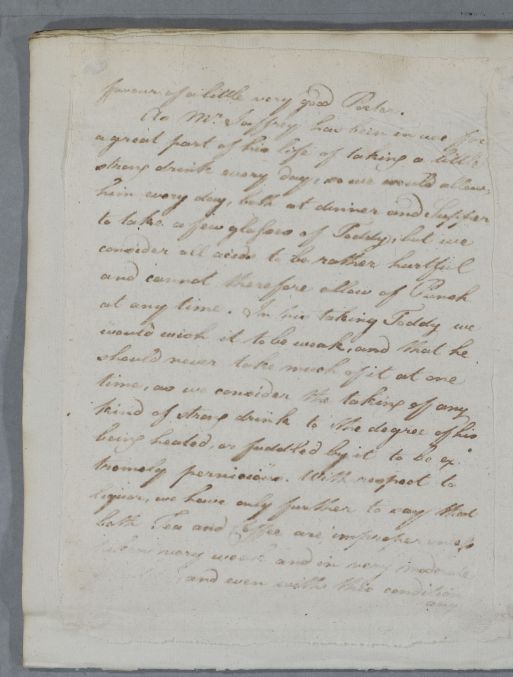 favour of a little very good Porter.
As Mr. Jaffrey has been in use for
a great part of his life of taking a little
strong drink every day, so we would allow
him every day, both at dinner and Supper
to take a few glasses of Toddy, but we
consider all acids to be rather hurtful
and cannot therefore allow of Punch
at any time. In his taking Toddy we
would wish it to be weak, and that he
should never take much of it at one
time, as we consider the taking of any
kind of strong drink to the degree of his
being heated, or fuddled by it to be ex-
tremely pernicious. With respect to
liquors, we have only further to say that
both Tea and Coffee are improper unless
taken very weak and in very moderate
and even with this condition
any